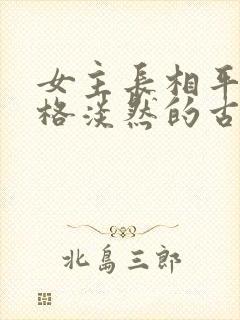 女主长相平
格淡然的古
北島三郎